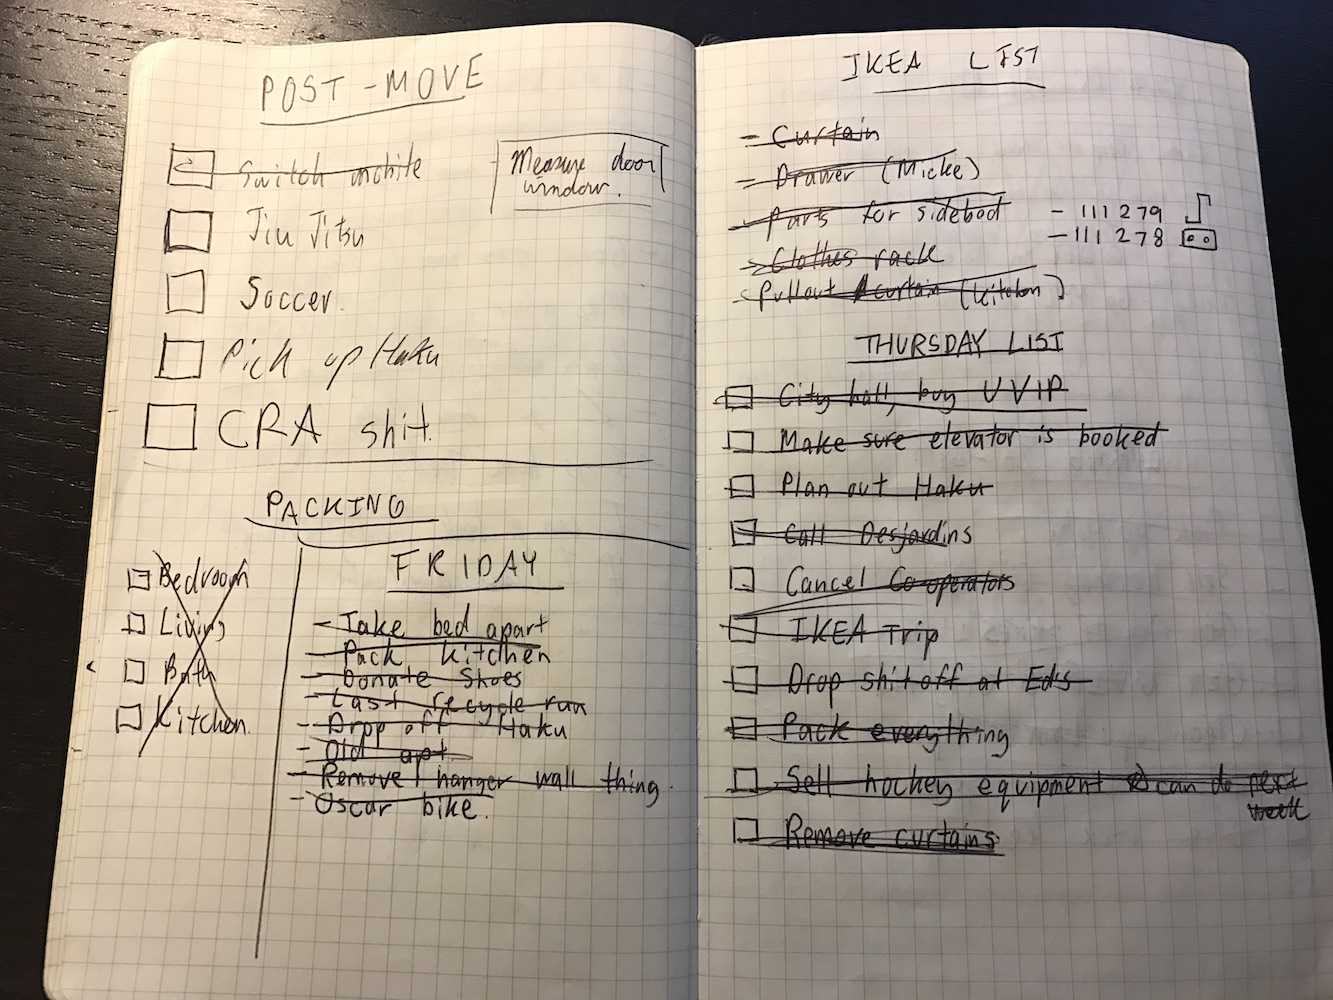 POST-MOVE
Switch mobile
Measure door
window.
Jiu Jitsu
Soccer.
Pick up Haku
CRA shit.
PACKING
Bedroom
Living
Bath
Kitchen.
FRIDAY
- Take bed apart
- Pack kitchen
- Donate Shoes
- Last recycle run
- Drop off Haku
- Old apt
- Remove hanger wall thing.
- Oscar bike.
IKEA LIST
- Curtain
- Drawer (Micke)
- Parts for sidebod
- 111 279
- 111 278
- Clothes rack
- Pullout curtain (kitchen)
THURSDAY LIST
City hall, buy UVIP
Make sure elevator is booked
Plan out Haku
Call Desjardins
Cancel Co-operators
IKEA Trip
Drop shit off at Ed's
Pack everything
Sell hockey equipment can do next
week
Remove curtains